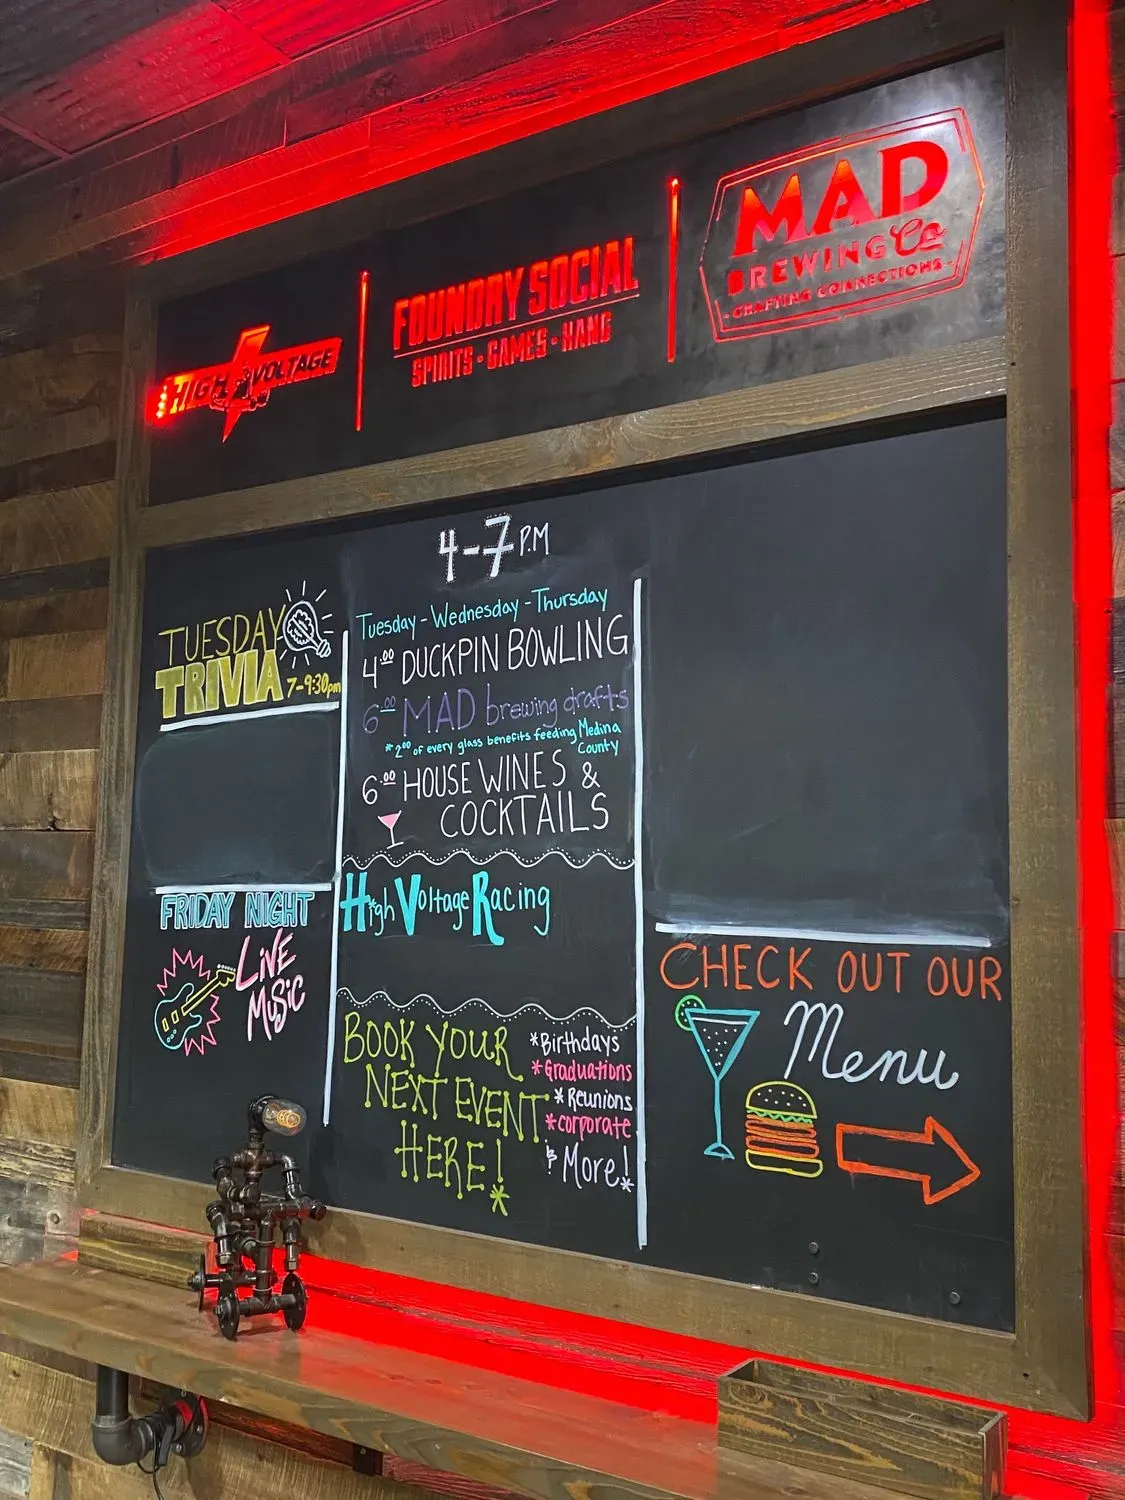 HIGH VOLTAGE
FOUNDRY SOCIAL
SPIRITS · GAMES · HANG
MAD
BREWING Co
· CRAFTING CONNECTIONS ·
TUESDAY
TRIVIA 7-9:30pm
FRIDAY NIGHT
LiVE
MuSiC
4-7 P.M
Tuesday - Wednesday - Thursday
4.00 DUCKPIN BOWLING
6.00 MAD brewing drafts
*2.00 of every glass benefits feeding Medina
County
6.00 HOUSE WINES &
COCKTAILS
High Voltage Racing
BOOK YOUR
NEXT EVENT
HERE!
*Birthdays
*Graduations
*Reunions
*corporate
& More!
CHECK OUT OUR
Menu